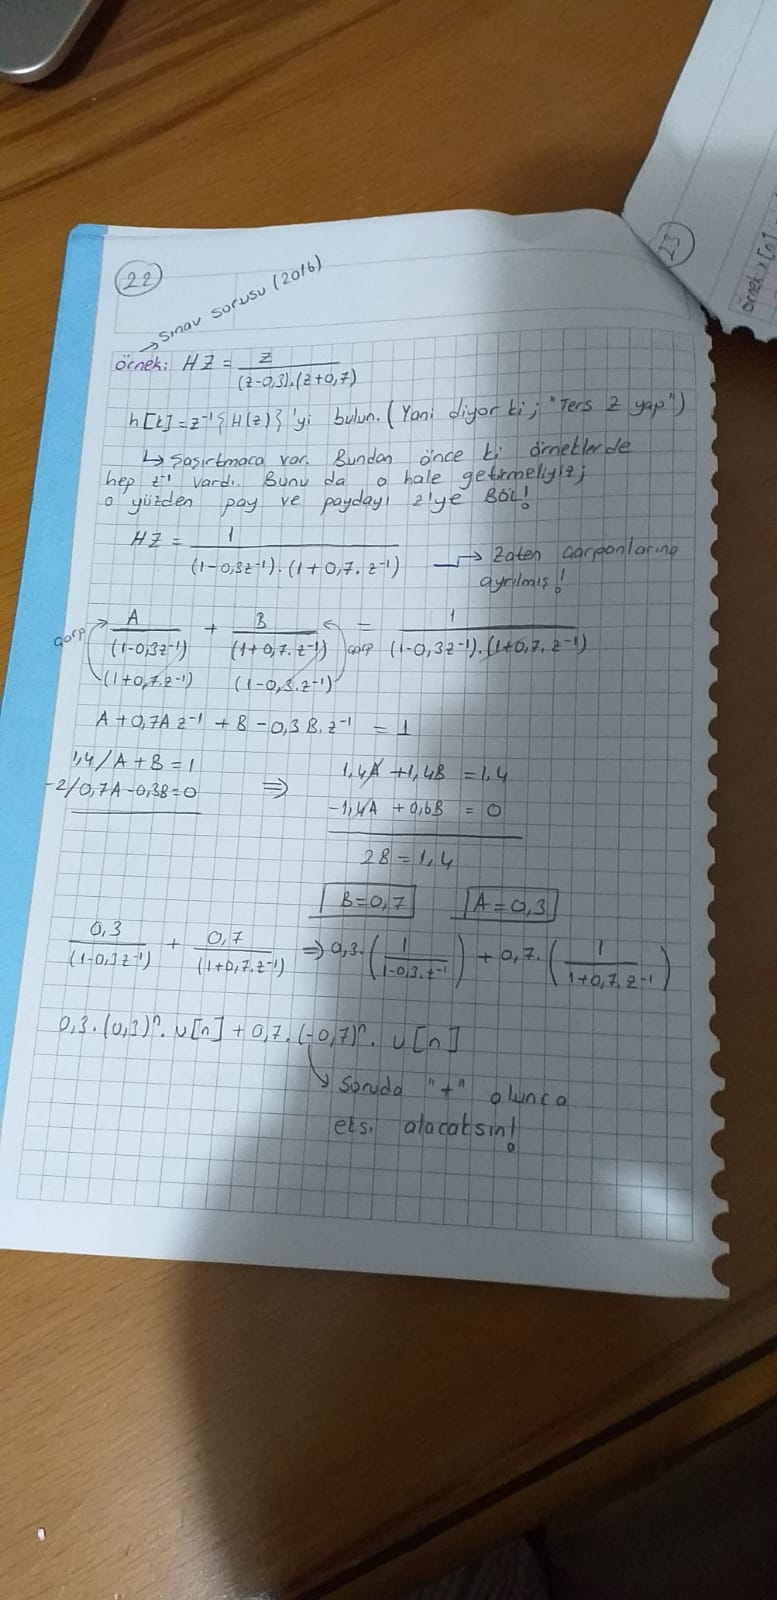 22
23
Örnek: x[n]
→ Sınav sorusu (2016)
Örnek: HZ = z / (z-0,3).(z+0,7)
h[k] = z⁻¹{H(z)}'yi bulun. (Yani diyor ki; "Ters z yap")
↳ Şaşırtmaca var. Bundan önce ki örneklerde
hep z⁻¹ vardı. Bunu da o hale getirmeliyiz;
o yüzden pay ve paydayı z'ye BÖL!
HZ = 1 / (1-0,3z⁻¹).(1+0,7.z⁻¹) → Zaten çarpanlarına
ayrılmış!
çarp A / (1-0,3z⁻¹) + B / (1+0,7.z⁻¹) çarp = 1 / (1-0,3z⁻¹).(1+0,7.z⁻¹)
(1+0,7.z⁻¹) (1-0,3.z⁻¹)
A+0,7Az⁻¹ + B-0,3B.z⁻¹ = 1
1,4/A+B=1 ⇒ 1,4A+1,4B = 1,4
-2/0,7A-0,3B=0 -1,4A+0,6B = 0
2B=1,4
B=0,7 A=0,3
0,3 / (1-0,3z⁻¹) + 0,7 / (1+0,7.z⁻¹) ⇒ 0,3.(1 / 1-0,3.z⁻¹) + 0,7.(1 / 1+0,7.z⁻¹)
0,3.(0,3)ⁿ.u[n] + 0,7.(-0,7)ⁿ.u[n]
↳ Soruda "+" olunca
eksi alacaksın!